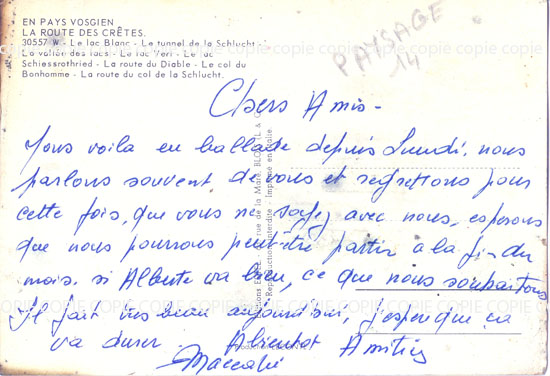 EN PAYS VOSGIEN
LA ROUTE DES CRÊTES.
30557 W - Le lac Blanc - Le tunnel de la Schlucht -
La vallée des lacs - Le lac Vert - Le lac
Schiessrothried - La route du Diable - Le col du
Bonhomme - La route du col de la Schlucht.
PAYSAGE
14
Chers Amis -
Nous voila en ballade depuis Lundi. nous
parlons souvent de vous et regrettons pour
cette fois, que vous ne soyez avec nous, esperons
que nous pourrons peut-être partir a la fin du
mois. si Alberte va bien, ce que nous souhaitons
il fait très beau aujourd'hui, j'espere que ca
va durer. Abientot Amitiés
rue de la Mare,
Reproduction interdite - Imprimé en Italie.
COPIE COPIE COPIE COPIE COPIE COPIE